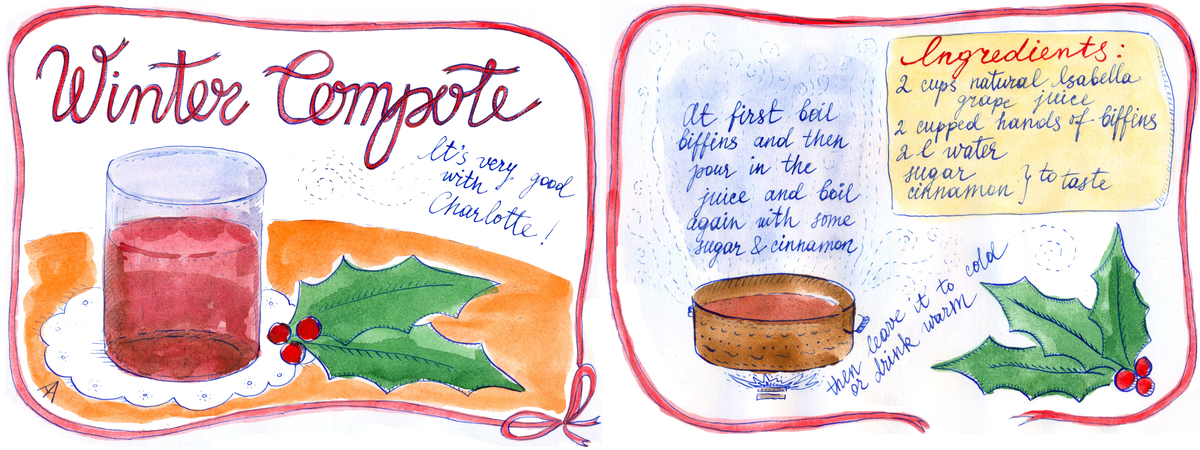 Winter Compote
It's very good
with
Charlotte!
At first boil
biffins and then
pour in the
juice and boil
again with some
sugar & cinnamon
then leave it to cold
or drink warm
Ingredients:
2 cups natural Isabella
grape juice
2 cupped hands of biffins
2 l water
sugar
cinnamon } to taste